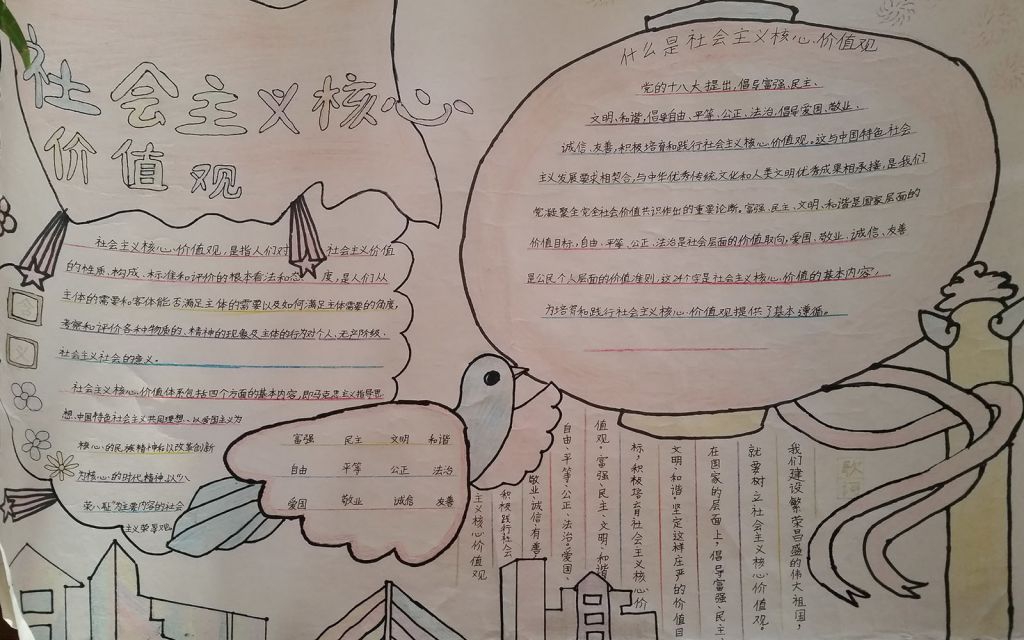 社会主义核心
价值观
社会主义核心价值观，是指人们对社会主义价值
的性质、构成、标准和评价的根本看法和态度，是人们从
主体的需要和客体能否满足主体的需要以及如何满足主体需要的角度，
考察和评价各种物质的、精神的现象及主体的行为对个人、无产阶级、
社会主义社会的意义。
社会主义核心价值体系包括四个方面的基本内容，即马克思主义指导思
想、中国特色社会主义共同理想、以爱国主义为
核心的民族精神和以改革创新
为核心的时代精神、以"八
荣八耻"为主要内容的社会
主义荣辱观。
富强 民主 文明 和谐
自由 平等 公正 法治
爱国 敬业 诚信 友善
什么是社会主义核心价值观
党的十八大提出，倡导富强、民主、
文明、和谐，倡导自由、平等、公正、法治，倡导爱国、敬业、
诚信、友善，积极培育和践行社会主义核心价值观。这与中国特色社会
主义发展要求相契合，与中华优秀传统文化和人类文明优秀成果相承接，是我们
党凝聚全党全社会价值共识作出的重要论断。富强、民主、文明、和谐是国家层面的
价值目标，自由、平等、公正、法治是社会层面的价值取向，爱国、敬业、诚信、友善
是公民个人层面的价值准则，这24个字是社会主义核心价值的基本内容"，
为培育和践行社会主义核心价值观提供了基本遵循。
我们建设繁荣昌盛的伟大祖国，
就要树立社会主义核心价值观。
在国家的层面上，倡导富强、民主、
文明、和谐。坚定这样庄严的价值目
标，积极培育社会主义核心价
值观。富强、民主、文明、和谐
自由、平等、公正、法治。爱国、
敬业、诚信、有善，
积极践行社会
主义核心价值观